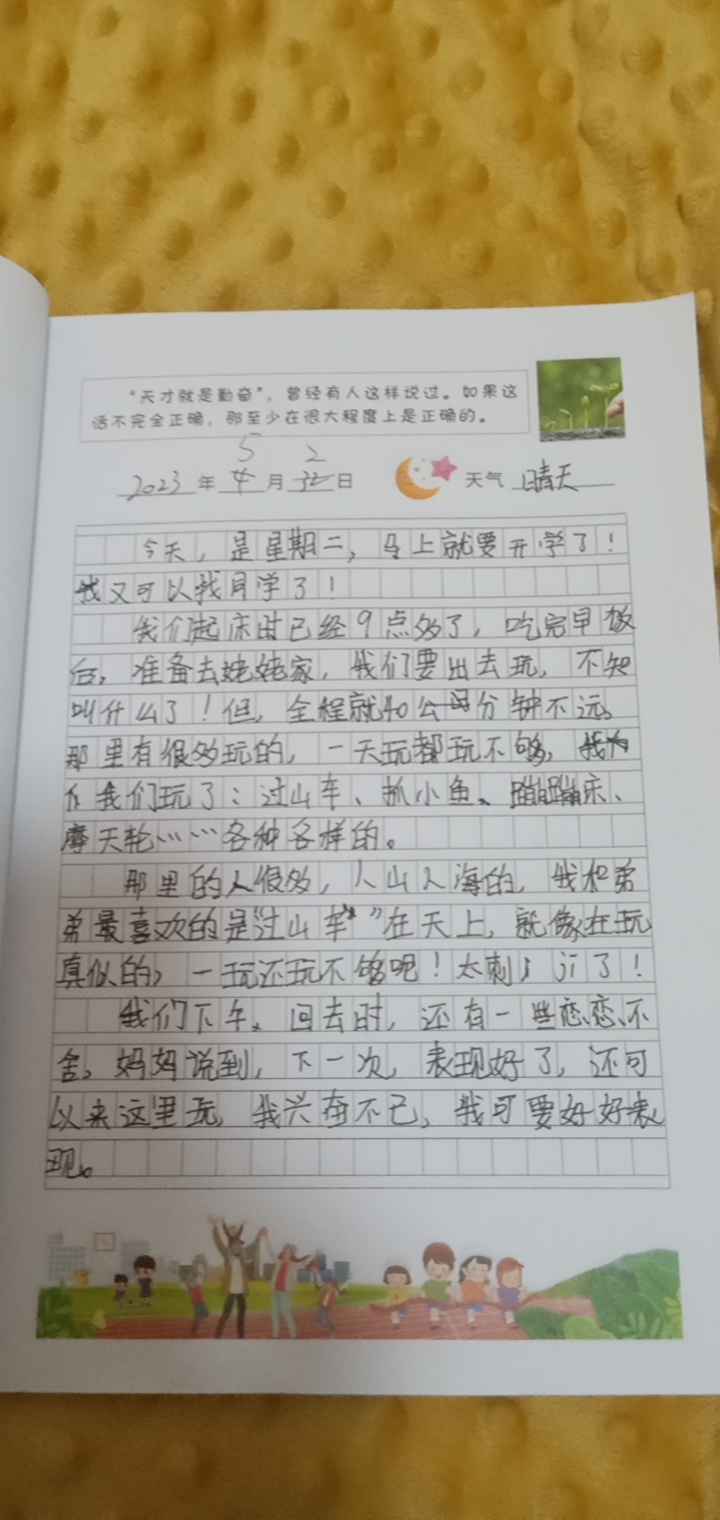 “天才就是勤奋”，曾经有人这样说过。如果这
话不完全正确，那至少在很大程度上是正确的。
2023年5月2日 天气 晴天
今天，是星期二，马上就要开学了！
我又可以找同学了！
我们起床时已经9点多了，吃完早饭
后，准备去姥姥家，我们要出去玩，不知
叫什么了！但，全程就40公分钟不远。
那里有很多玩的，一天玩都玩不够，
我们玩了：过山车、抓小鱼、蹦蹦床、
摩天轮……各种各样的。
那里的人很多，人山人海的，我和弟
弟最喜欢的是“过山车”在天上，就像在玩
真似的，一玩还玩不够呢！太刺激了！
我们下午、回去时，还有一些恋恋不
舍，妈妈说到，下一次，表现好了，还可
以来这里玩，我兴奋不已，我可要好好表
现。